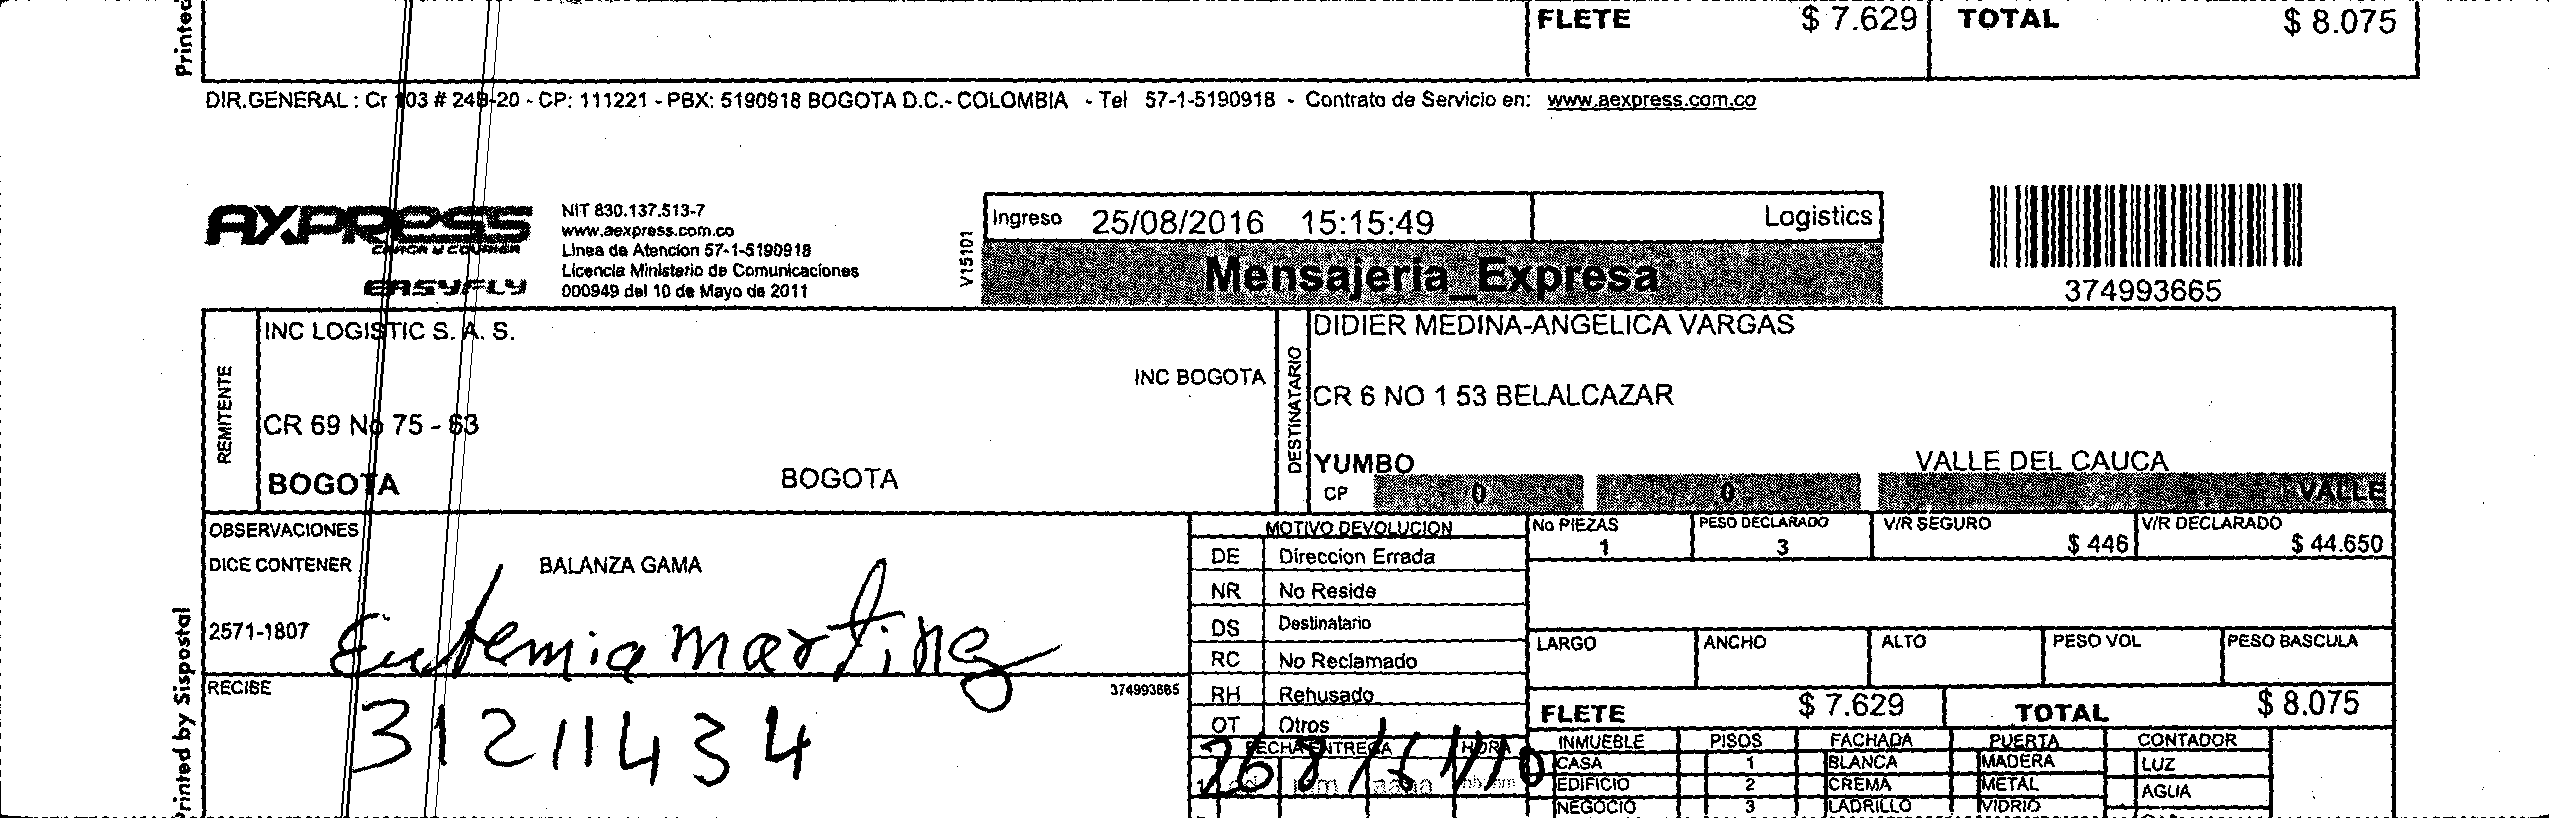 Printed
FLETE $ 7.629 TOTAL $ 8.075
DIR.GENERAL : Cr 103 # 24B-20 - CP: 111221 - PBX: 5190918 BOGOTA D.C.- COLOMBIA - Tel 57-1-5190918 - Contrato de Servicio en: www.aexpress.com.co
AXPRESS
CARGA Y COURIER
EASYFLY
NIT 830.137.513-7
www.aexpress.com.co
Linea de Atencion 57-1-5190918
Licencia Ministerio de Comunicaciones
000949 del 10 de Mayo de 2011
V15101
Ingreso 25/08/2016 15:15:49 Logistics
Mensajeria_Expresa
374993665
REMITENTE
INC LOGISTIC S. A. S.
INC BOGOTA
CR 69 No 75 - 63
BOGOTA BOGOTA
DESTINATARIO
DIDIER MEDINA-ANGELICA VARGAS
CR 6 NO 1 53 BELALCAZAR
YUMBO VALLE DEL CAUCA
CP 0 0 VALLE
OBSERVACIONES
DICE CONTENER BALANZA GAMA
2571-1807
Eufemia martinez
RECIBE 374993665
31211434
MOTIVO DEVOLUCION
DE Direccion Errada
NR No Reside
DS Destinatario
RC No Reclamado
RH Rehusado
OT Otros
FECHA ENTREGA HORA
26 8 16 11/10
No PIEZAS PESO DECLARADO V/R SEGURO V/R DECLARADO
1 3 $ 446 $ 44.650
LARGO ANCHO ALTO PESO VOL PESO BASCULA
FLETE $ 7.629 TOTAL $ 8.075
INMUEBLE PISOS FACHADA PUERTA CONTADOR
CASA 1 BLANCA MADERA LUZ
EDIFICIO 2 CREMA METAL AGUA
NEGOCIO 3 LADRILLO VIDRIO
Printed by Sispostal